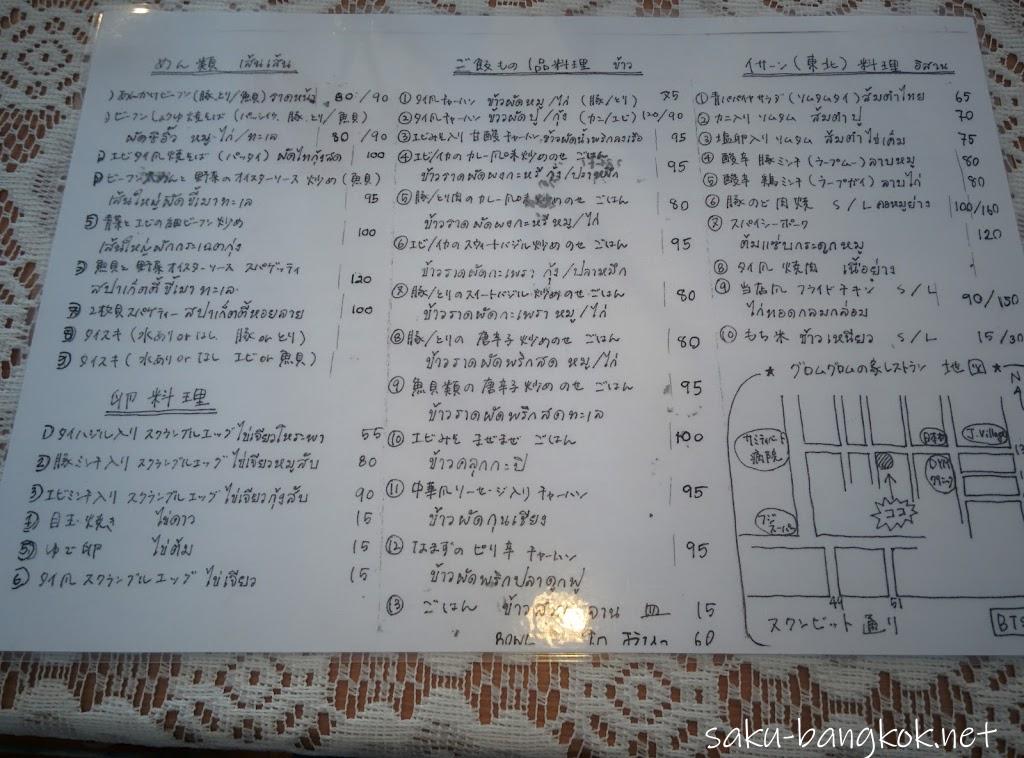 めん類 เส้นเส้น
① あんかけビーフン (豚,とり/魚貝) ราดหน้า 80/90
ビーフンしょうゆ焼そば (豚,とり/魚貝)
ผัดซีอิ๊ว หมู/ไก่/ทะเล 80/90
エビタイ風焼そば (パッタイ) ผัดไทกุ้งสด 100
ビーフン と 野菜のオイスターソース炒め (魚貝)
เส้นใหญ่ผัดขี้เมาทะเล 95
⑤ 青菜とエビの細ビーフン炒め
เส้นใหญ่ผักกระเฉดกุ้ง 100
魚貝と野菜オイスターソース スパゲッティ
สปาเก็ตตี้ ขี้เมา ทะเล 120
2枚貝スパゲティー สปาเก็ตตี้หอยลาย 100
タイスキ (水あり or なし 豚 or とり)
タイスキ (水あり or なし エビ or 魚貝)
卵料理
① タイバジル入り スクランブルエッグ ไข่เจียวโหระพา 55
② 豚ミンチ入り スクランブルエッグ ไข่เจียวหมูสับ 80
③ エビミンチ入り スクランブルエッグ ไข่เจียวกุ้งสับ 90
④ 目玉焼き ไข่ดาว 15
⑤ ゆで卵 ไข่ต้ม 15
⑥ タイ風 スクランブルエッグ ไข่เจียว 15
ご飯もの 1品料理 ข้าว
① タイ風チャーハン ข้าวผัดหมู/ไก่ (豚/とり) 75
② タイ風チャーハン ข้าวผัดปู/กุ้ง (カニ/エビ) 120/90
③ エビみそ入り 甘酸チャーハン ข้าวผัดน้ำพริกลงเรือ 95
④ エビ/イカのカレー風味炒めのせ ごはん
ข้าวราดผัดผงกะหรี่ กุ้ง/ปลาหมึก 95
⑤ 豚/とり肉のカレー風味炒めのせ ごはん 80
ข้าวราดผัดผงกะหรี่ หมู/ไก่
⑥ エビ/イカのスイートバジル炒めのせ ごはん 95
ข้าวราดผัดกะเพรา กุ้ง/ปลาหมึก
⑦ 豚/とりのスイートバジル炒めのせ ごはん 80
ข้าวราดผัดกะเพรา หมู/ไก่
⑧ 豚/とりの唐辛子炒めのせ ごはん 80
ข้าวราดผัดพริกสด หมู/ไก่
⑨ 魚貝類の唐辛子炒めのせ ごはん 95
ข้าวราดผัดพริกสดทะเล
⑩ エビみそ まぜまぜ ごはん 100
ข้าวคลุกกะปิ
⑪ 中華風ソーセージ入り チャーハン 95
ข้าวผัดกุนเชียง
⑫ なまずのピリ辛 チャーハン 95
ข้าวผัดพริกปลาดุกฟู
⑬ ごはん ข้าว จาน 皿 15
BOWL 60
イサーン (東北) 料理 อีสาน
① 青パパイヤサラダ (ソムタムタイ) ส้มตำไทย 65
② カニ入り ソムタム ส้มตำปู 70
③ 塩卵入り ソムタム ส้มตำไข่เค็ม 75
④ 酸辛 豚ミンチ (ラープムー) ลาบหมู 80
⑤ 酸辛 鶏ミンチ (ラープガイ) ลาบไก่ 80
⑥ 豚のど肉焼 S/L คอหมูย่าง 100/160
⑦ スパイシーポーク 120
ต้มแซ่บกระดูกหมู
⑧ タイ風 焼肉 เนื้อย่าง
⑨ 当店風 フライドチキン S/L 90/150
ไก่ทอดกลมกล่อม
⑩ もち米 ข้าวเหนียว S/L 15/30
★ グロムグロムの家レストラン 地図 ★
N
サミティベート病院
J.Village
DYM クリニック
フジスーパー
ココ
49
51
スクンビット通り
BTS
saku-bangkok.net